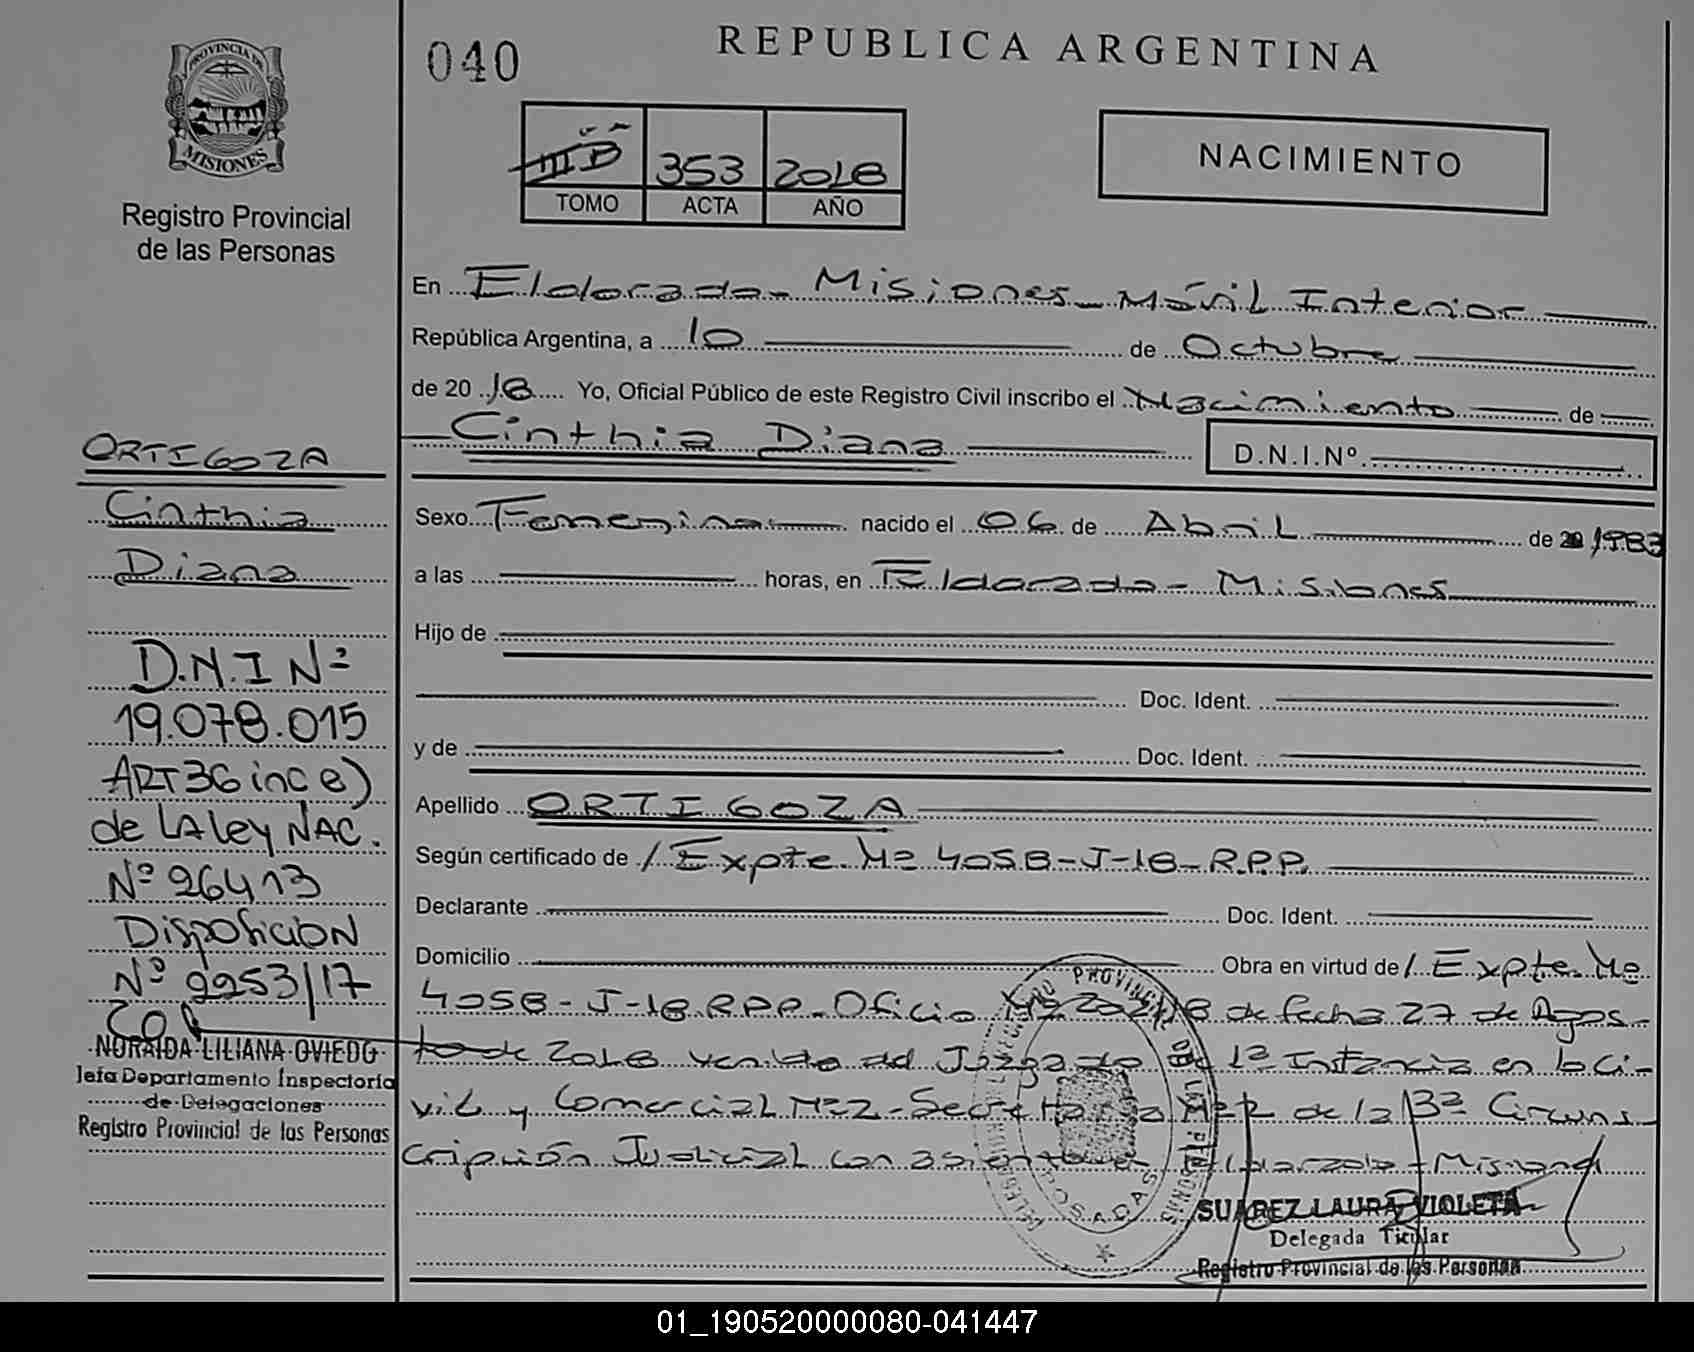 PROVINCIA DE
MISIONES
Registro Provincial
de las Personas
ORTIGOZA
Cinthia
Diana
D.N.I Nº
19.078.015
ART 36 inc e)
de LA ley NAC.
Nº 26413
Disposicion
Nº 2253/17
NORAIDA LILIANA OVIEDO
Jefa Departamento Inspectoria
de Delegaciones
Registro Provincial de las Personas
040
REPUBLICA ARGENTINA
III B 353 2018
TOMO ACTA AÑO
NACIMIENTO
En Eldorado - Misiones - Móvil Interior
República Argentina, a 10 de Octubre
de 20 18 Yo, Oficial Público de este Registro Civil inscribo el Nacimiento de
Cinthia Diana D.N.I.Nº
Sexo Femenino nacido el 06 de Abril de 20 /1983
a las horas, en Eldorado - Misiones
Hijo de
Doc. Ident.
y de Doc. Ident.
Apellido ORTIGOZA
Según certificado de / Expte. Nº 4058-J-18-R.P.P.
Declarante Doc. Ident.
Domicilio Obra en virtud de / Expte. Nº
4058-J-18-R.P.P. Oficio Nº de fecha 27 de Agos-
to de 2018 venido del Juzgado de 1ª Instancia en lo Ci-
vil y Comercial Nº2 - Secretaria Nº de la 3ª Circuns
cripción Judicial con asiento en Eldorado - Misiones
POSADAS
SUAREZ LAURA VIOLETA
Delegada Titular
Registro Provincial de las Personas
01_190520000080-041447